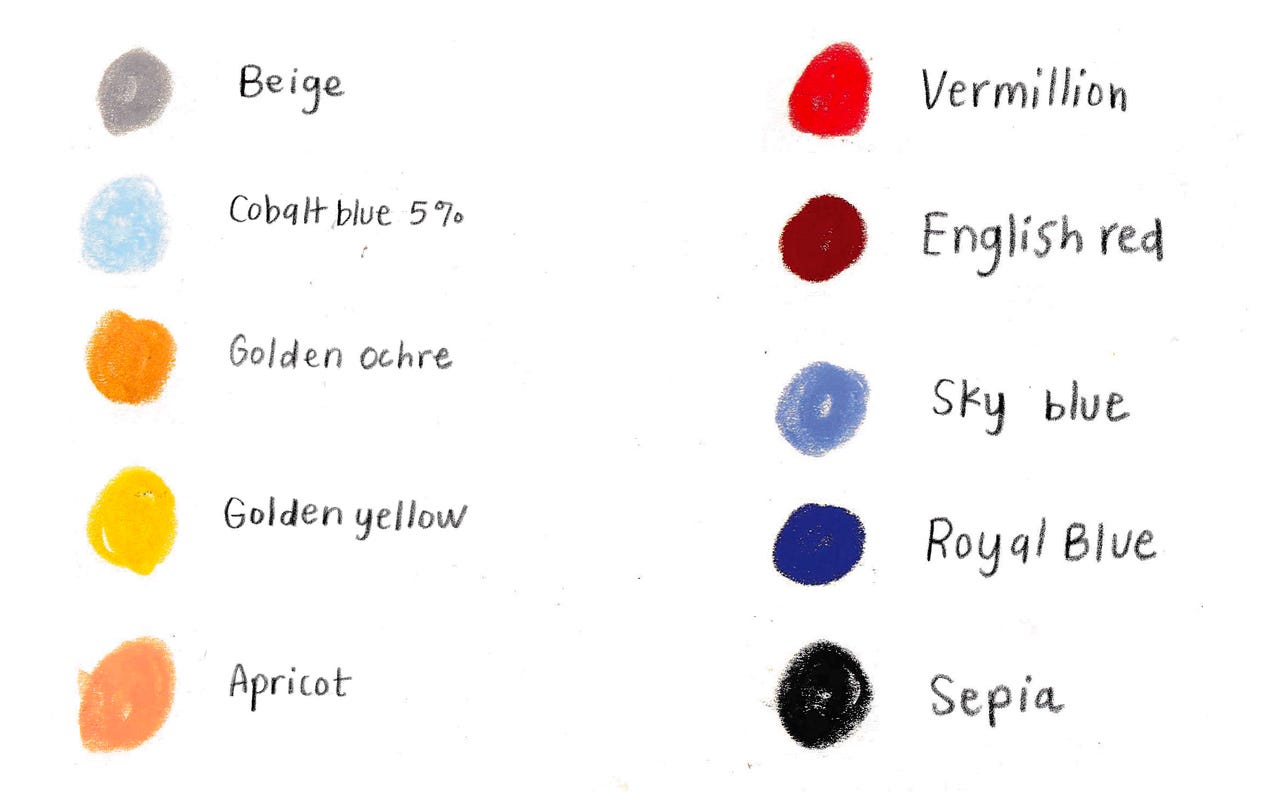 Beige
Cobalt blue 5%
Golden ochre
Golden yellow
Apricot
Vermillion
English red
Sky blue
Royal Blue
Sepia